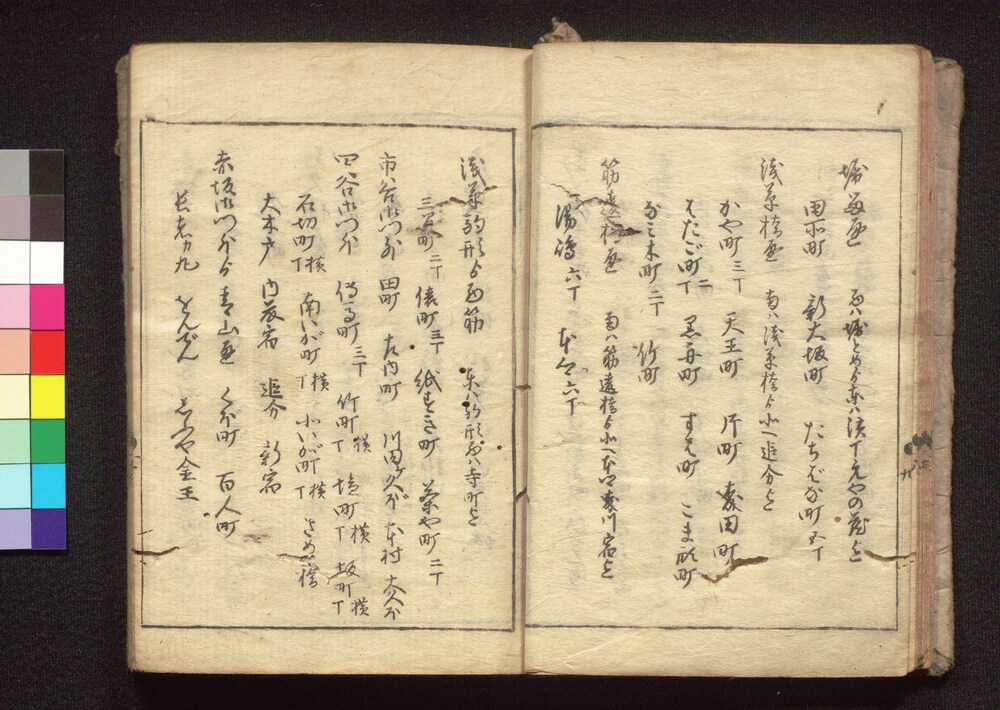 堀留通 西ハ堀とめより東ハ浜丁
田所町 新大坂町 たちばな町 五丁
浅草橋通 南ハ浅草橋より北へ追分と
かや町二丁 天王町 片町
はたご町二丁 黒舟町 すわ町 こま形町
なミ木町二丁 竹町
筋違橋通 南ハ筋違橋より北へ
湯嶋六丁 本郷六丁
浅草駒形より西筋 東ハ駒形西ハ寺町と
三間町二丁 俵町三丁 紙すき町 茶や町二丁
市谷御門外 田町 左内町 川田ヶ久ボ 本村 大久ボ
四谷御門外 伝馬町三丁 竹町横丁 塩町横丁 坂町横丁
石切町横丁 南いが町横丁 北いが町横丁 さめが橋
大木戸 内藤宿 追分 新宿
赤坂御門外より青山通 くぼ町 百人町
長者ヶ丸 しぶや金王